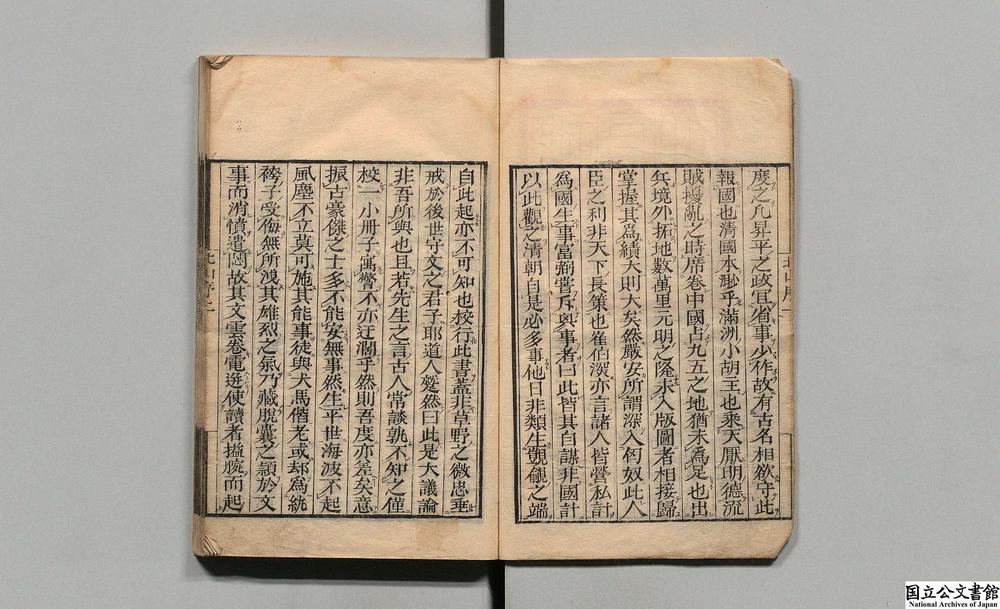 度之凢昇平之政冝省事少作故有古名相欲守此
報國也清國本渺乎滿洲小胡王也乘天厭明德流
賊擾亂之時席卷中國占九五之地猶未為足也出
兵境外拓地數萬里元明之隆未入版圖者相接歸
掌握其為績大則大矣然嚴安所謂深入匈奴此人
臣之利非天下長策也崔伯深亦言諸人皆營私計
為國生事富鄭嘗斥與事者曰此皆其自謀非國計
以此觀之清朝自是必多事他日非類生覬覦之端
自此起亦不可知也校行此書蓋非草野之微忠垂
戒於後世守文之君子耶道人蹙然曰此是大議論
非吾所與也且若先生之言古人常談孰不知之僅
校一小册子寓警不亦迂濶乎然則吾度亦差矣意
振古豪傑之士多不能安無事然生平世海波不起
風塵不立莫可施其能事徒與犬馬偕老或却為紈
袴子受侮無所洩其雄烈之氣乃藏脫囊之頴於文
事而消憤遣悶故其文雲卷電逝使讀者搤腕而起
国立公文書館
National Archives of Japan